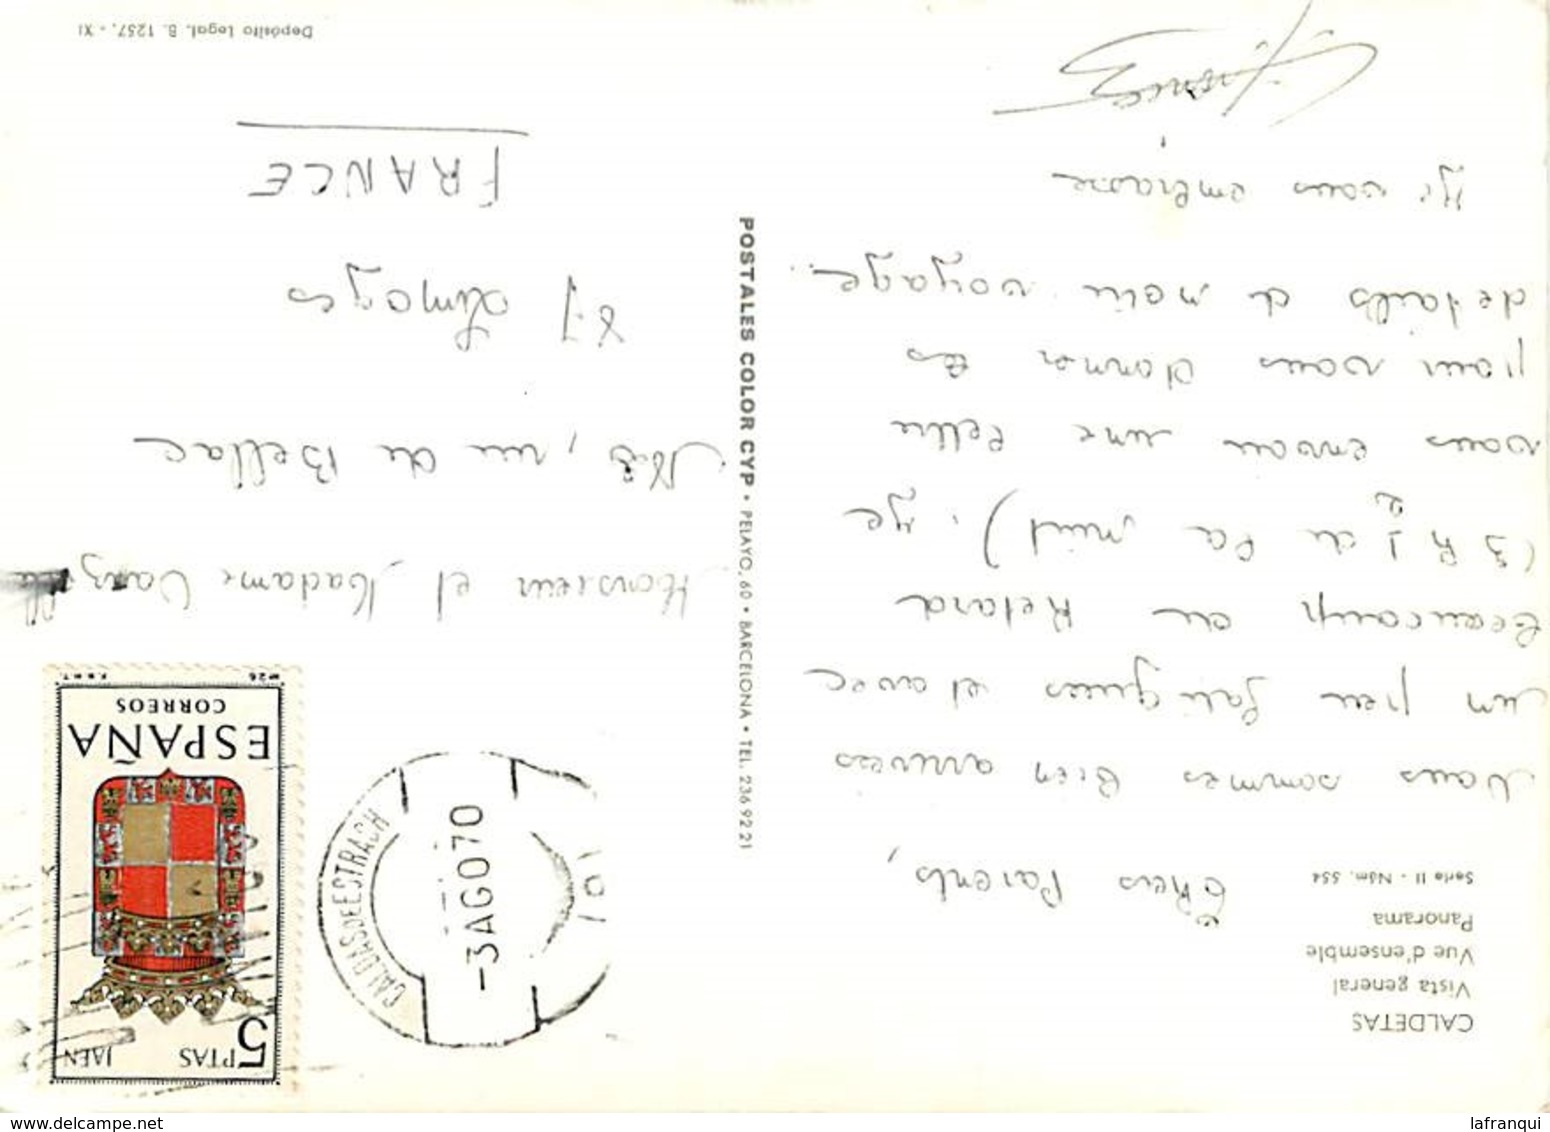 CALDETAS
Vista general
Vue d'ensemble
Panorama
Serie II - Núm. 554
Chers Parents,
Nous sommes bien arrivés
un peu fatigués et avec
beaucoup de Retard
(3 h ½ de la nuit). Je
vous envoie une lettre
pour vous donner les
details de notre voyage.
Je vous embrasse
POSTALES COLOR CYP • PELAYO, 60 • BARCELONA • TEL. 236 92 21
5 PTAS JAEN
ESPAÑA
CORREOS
Nº 26
F.N.M.T.
CALDAS DE ESTRACH
-3 AGO 70
Monsieur et Madame
, rue de Bellac
87 Limoges
FRANCE
Depósito Legal. B. 1257. - XI
lafranqui
delcampe.net